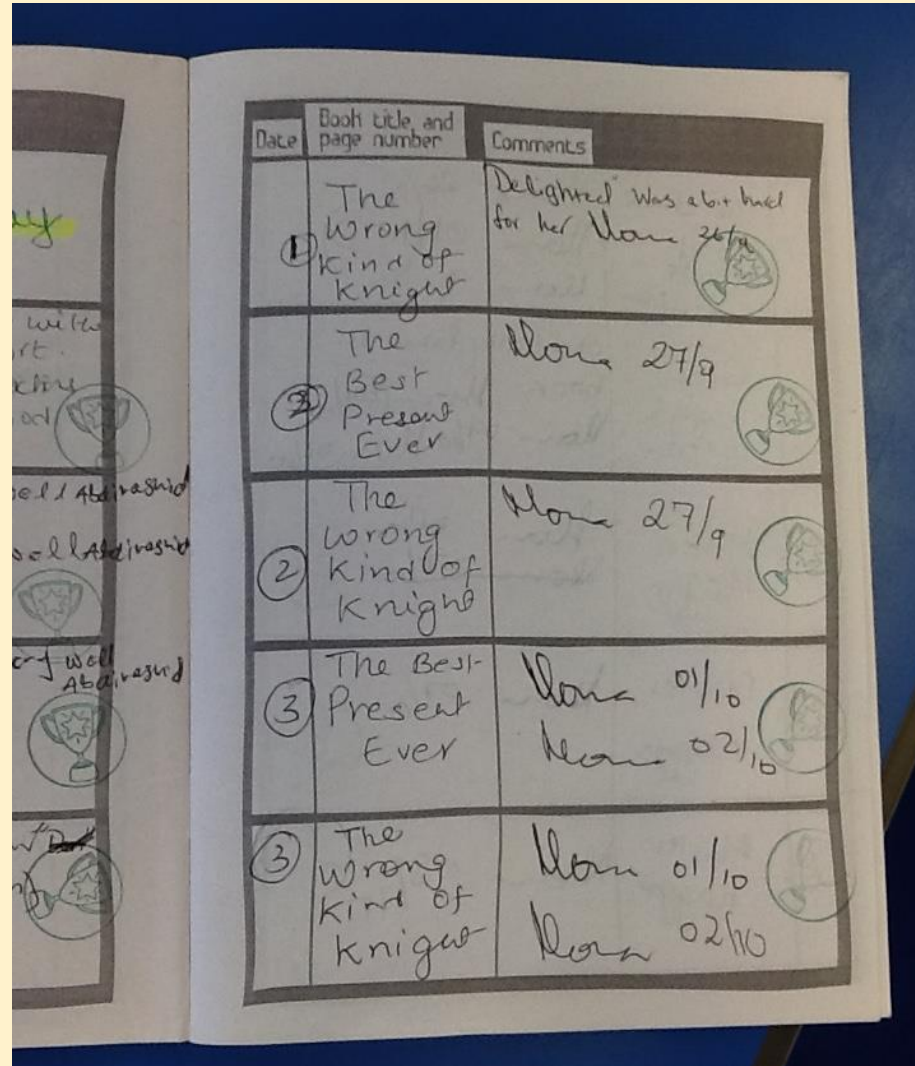 with
Abdirashid
Abdirashid
well
Abdirashid
Date
Book title and
page number
Comments
1
The
Wrong
Kind of
Knight
"Delighted" was a bit hard
for her 26/9
The
Best
Present
Ever
27/9
2
The
wrong
Kind of
Knight
27/9
3
The Best
Present
Ever
01/10
02/10
3
The
Wrong
Kind of
Knight
01/10
02/10